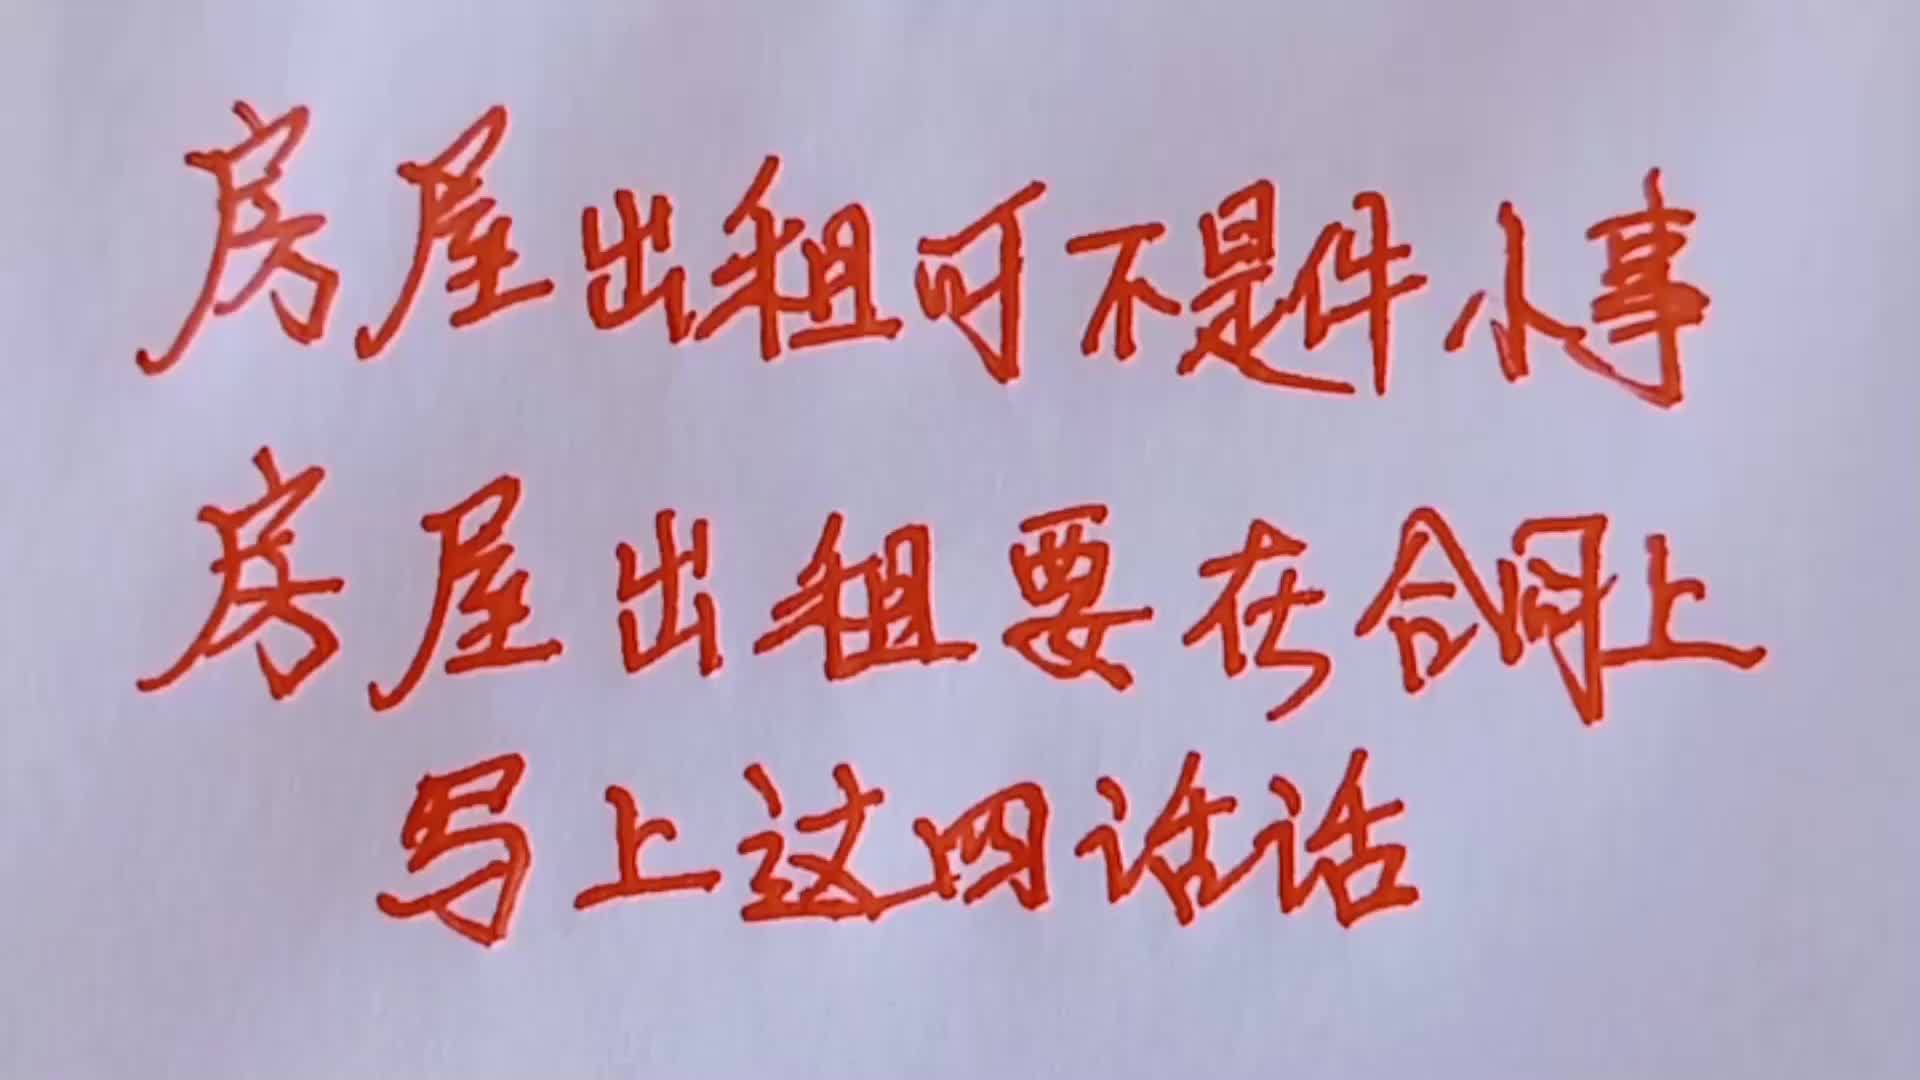 房屋出租可不是件小事
房屋出租要在合同上
写上这四话话